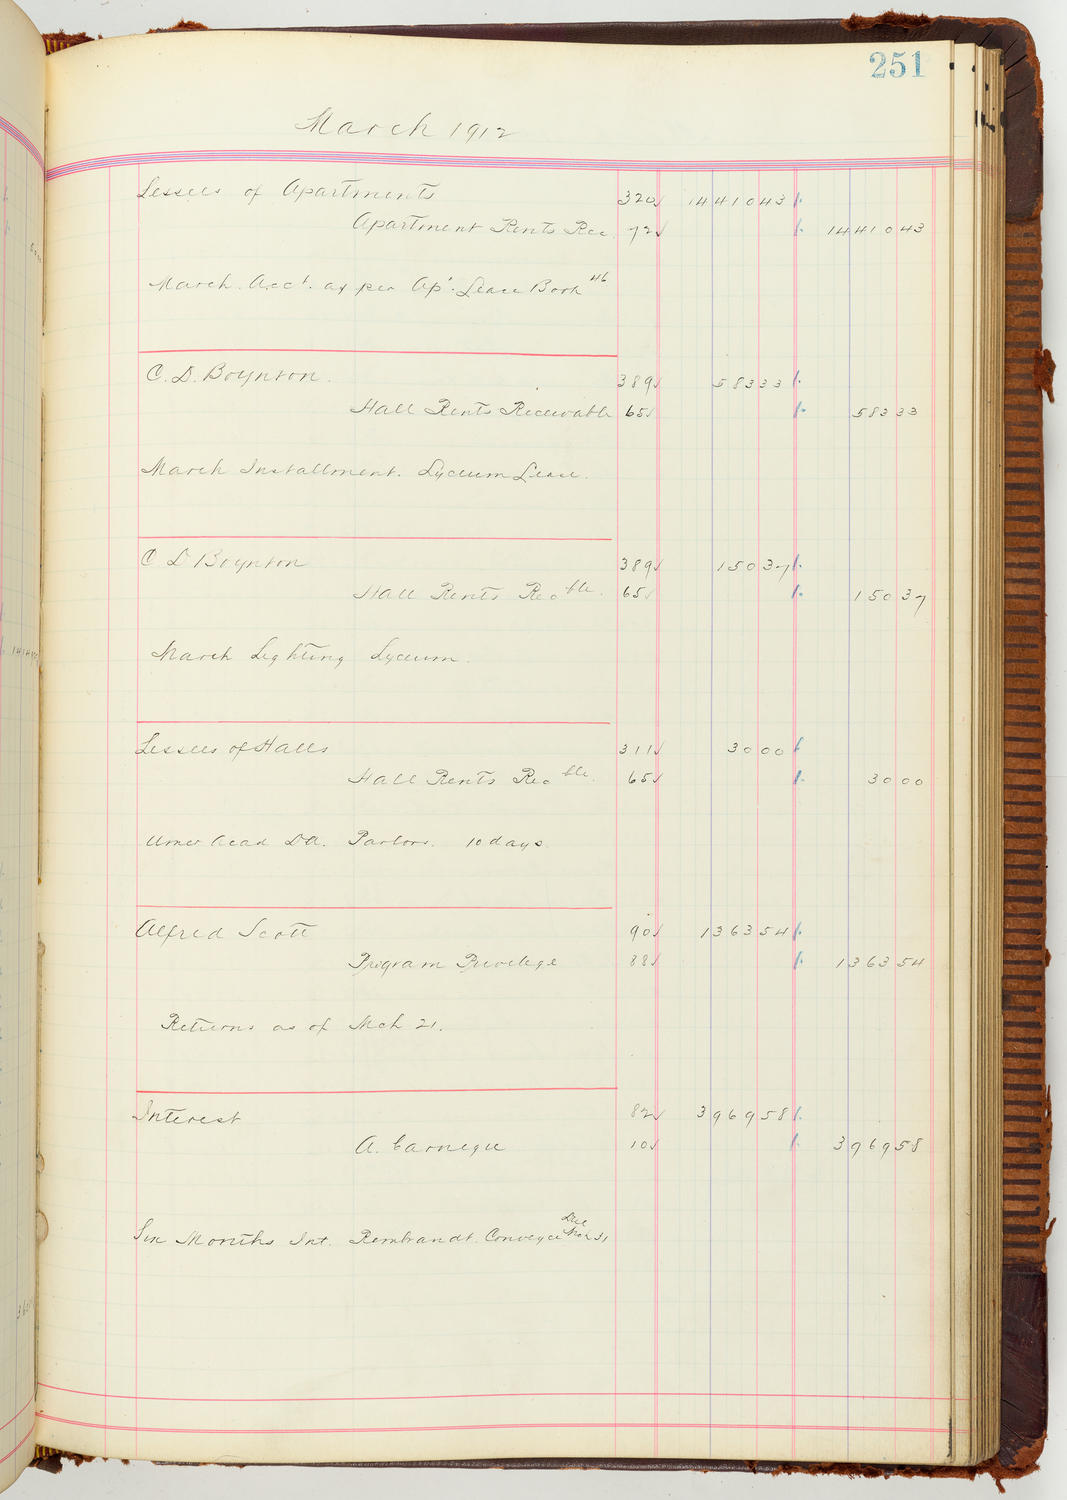 251
March 1912
Lessees of Apartments 320 1441043
Apartment Rents Rec. 72 1441043
March. Acct. as per Ap't. Lease Book 46
C. D. Boynton. 389 58333
Hall Rents Receivable 65 58333
March Installment. Lyceum Lease.
C D Boynton 389 15037
Hall Rents Recble. 65 15037
March Lighting Lyceum.
Lessees of Halls 311 3000
Hall Rents Recble. 65 3000
Amer Acad DA. Parlors. 10 days.
Alfred Scott 90 136354
Program Privilege 88 136354
Returns as of Mch 21.
Interest 82 396958
A. Carnegie 10 396958
Six Months Int. Rembrandt. Conveyce Due Mch 31